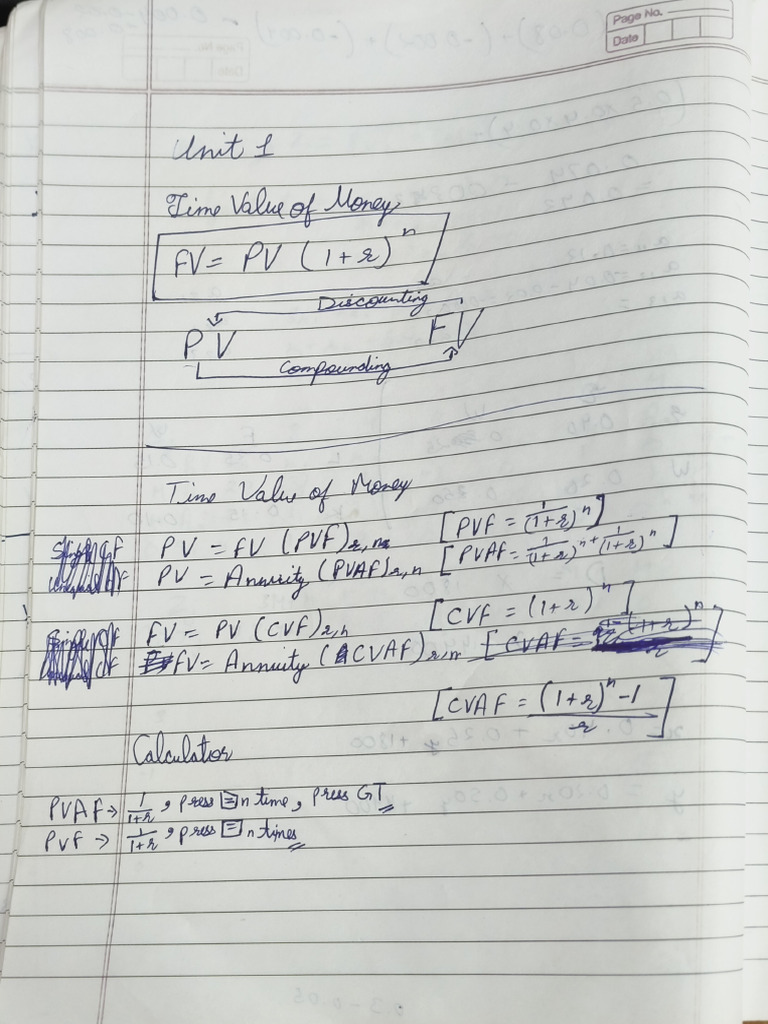 Page No.
Date
Unit 1
Time Value of Money
FV = PV (1+r)^n
Discounting
PV FV
Compounding
Time Value of Money
PV = FV (PVF)r,n [PVF = 1/(1+r)^n]
PV = Annuity (PVAF)r,n [PVAF = 1/(1+r)^n + 1/(1+r)^n]
FV = PV (CVF)r,n [CVF = (1+r)^n]
FV = Annuity (CVAF)r,n [CVAF =
[CVAF = (1+r)^n-1/r]
Calculator
PVAF → 1/1+r, press = n time, press GT
PVF → 1/1+r, press = n times